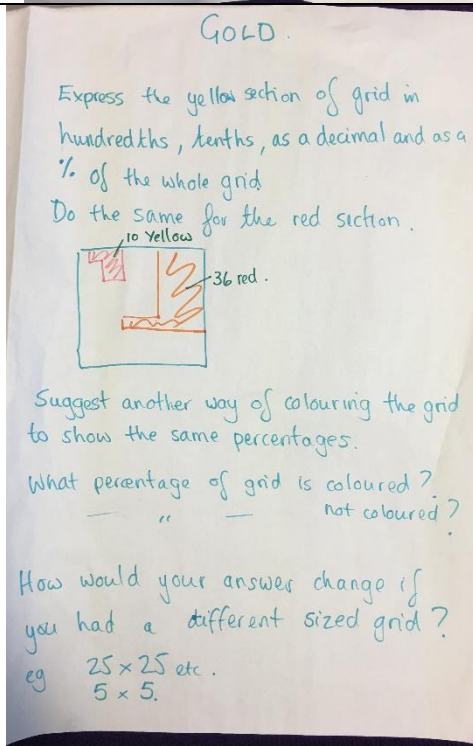 GOLD.
Express the yellow section of grid in
hundredths, tenths, as a decimal and as a
% of the whole grid
Do the same for the red section.
10 Yellow
36 red.
Suggest another way of colouring the grid
to show the same percentages.
What percentage of grid is coloured?
— " — not coloured?
How would your answer change if
you had a different sized grid?
eg 25 × 25 etc.
5 × 5.